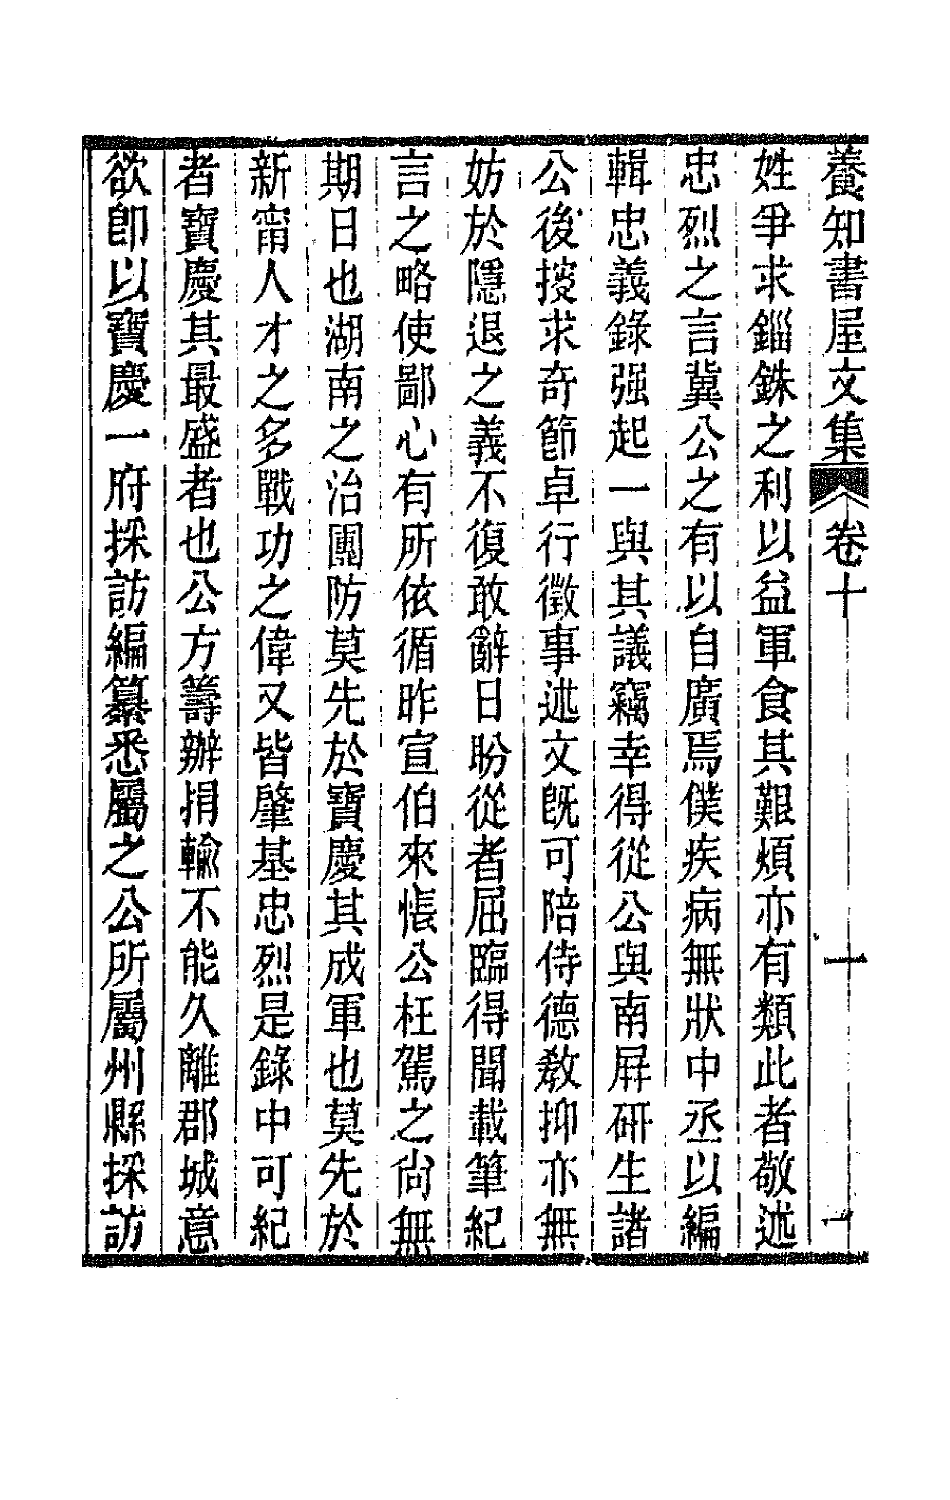 養知書屋文集 卷十 一
姓爭求錙銖之利以益軍食其艱煩亦有類此者敬述
忠烈之言冀公之有以自廣焉僕疾病無狀中丞以編
輯忠義錄强起一與其議竊幸得從公與南屛硏生諸
公後搜求奇節卓行徵事述文旣可陪侍德敎抑亦無
妨於隱退之義不復敢辭日盼從者屈臨得聞載筆紀
言之略使鄙心有所依循昨宣伯來悵公枉駕之尙無
期日也湖南之治團防莫先於寶慶其成軍也莫先於
新甯人才之多戰功之偉又皆肇基忠烈是錄中可紀
者寶慶其最盛者也公方籌辦捐輸不能久離郡城意
欲卽以寶慶一府採訪編纂悉屬之公所屬州縣採訪